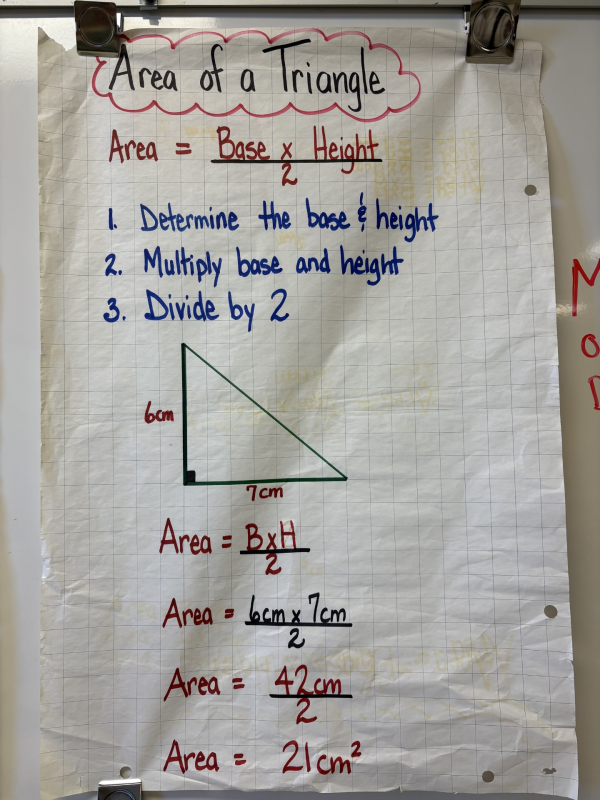 Area of a Triangle
Area = Base x Height
2
1. Determine the base & height
2. Multiply base and height
3. Divide by 2
6cm
7cm
Area = BxH
2
Area = 6cm x 7cm
2
Area = 42cm
2
Area = 21cm²
M